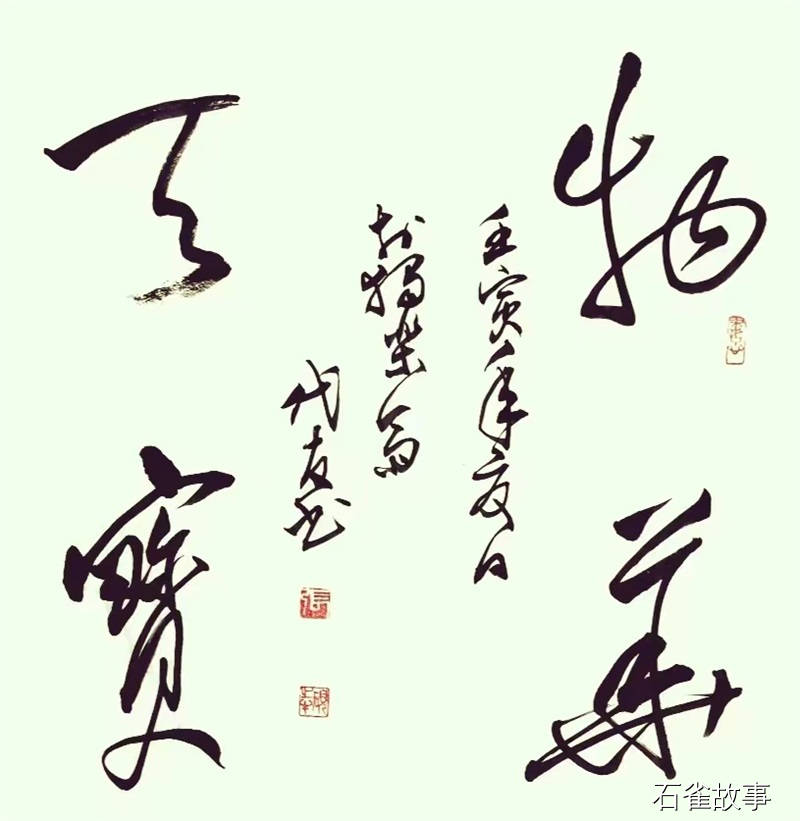 物華
天寶
壬寅年夏日
於獨樂齋
代友書
石雀故事